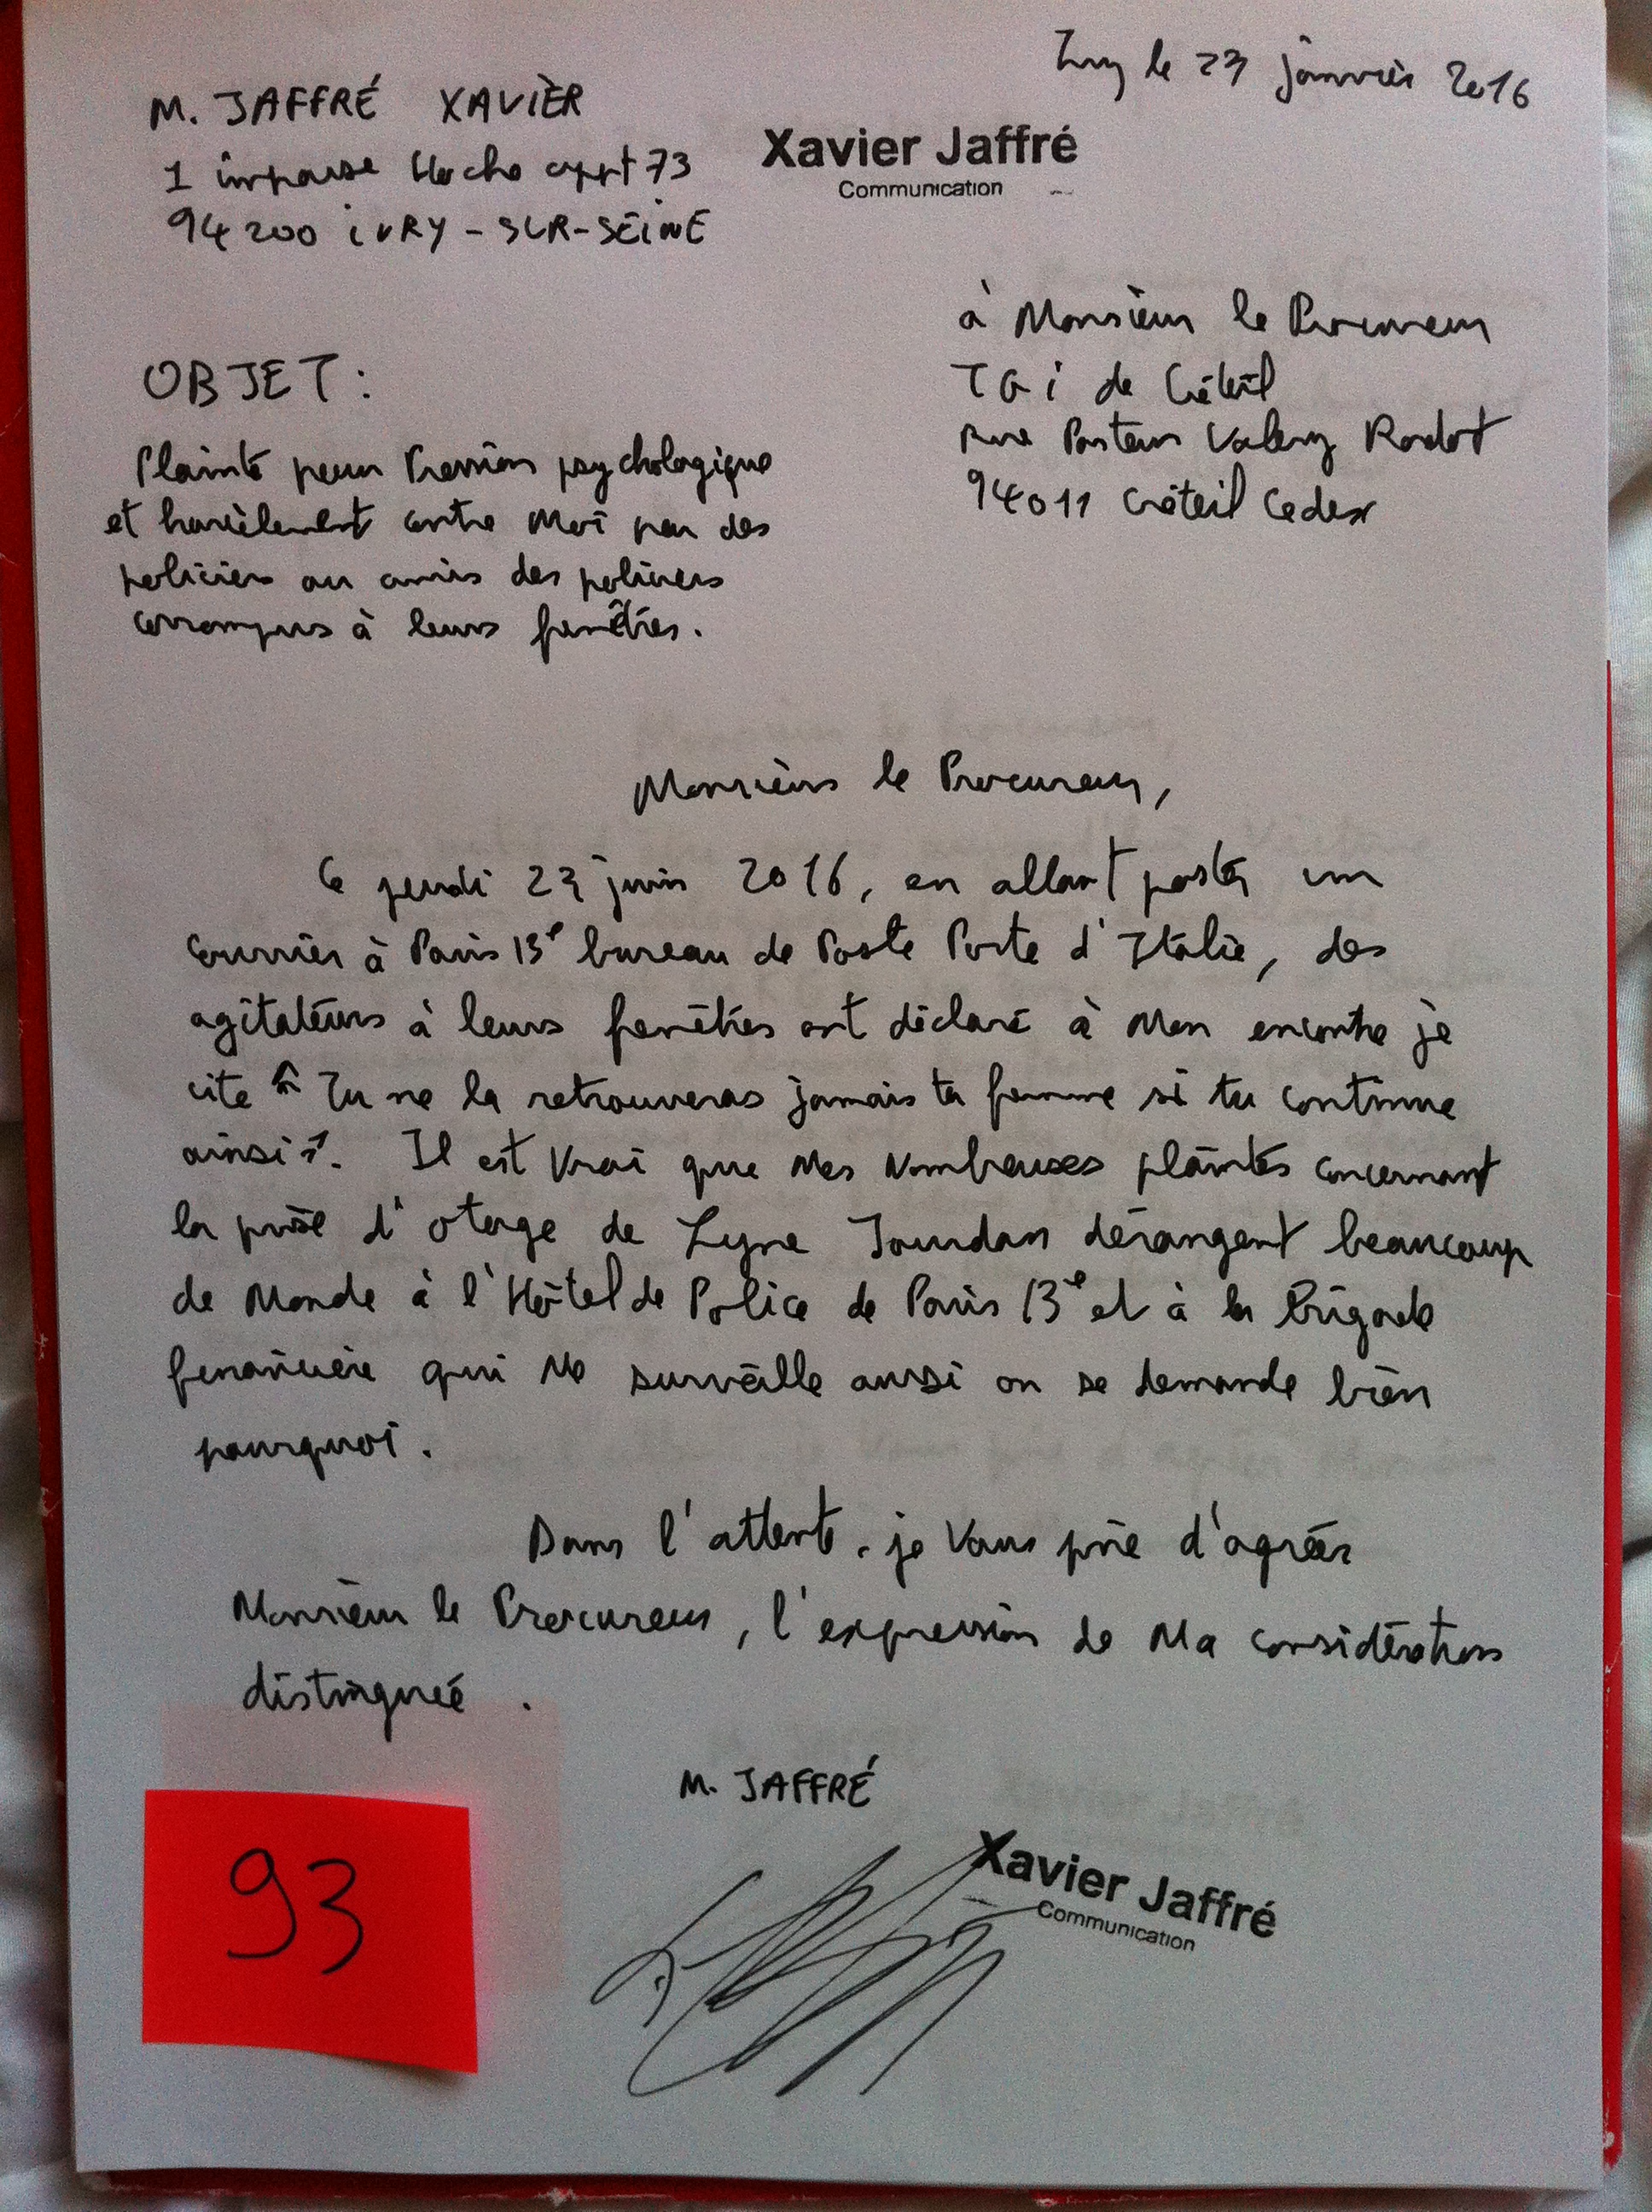 Ivry le 23 janvier 2016
M. JAFFRÉ XAVIER
1 impasse Hoche appt 73
94200 IVRY-SUR-SEINE
Xavier Jaffré
Communication
à Monsieur le Procureur
TGI de Créteil
rue Pasteur Valery Radot
94011 Créteil Cedex
OBJET :
Plainte pour Pression psychologique
et harcèlement contre Moi par des
policiers ou amis des policiers
corrompus à leurs fenêtres.
Monsieur le Procureur,
Ce jeudi 23 juin 2016, en allant poster un
courrier à Paris 13e bureau de Poste Porte d'Italie, des
agitateurs à leurs fenêtres ont déclaré à Mon encontre je
cite " Tu ne la retrouveras jamais ta femme si tu continue
ainsi ". Il est Vrai que Mes Nombreuses plaintes concernant
la prise d'otage de Lyne Jourdan dérangent beaucoup
de Monde à l'Hôtel de Police de Paris 13e et à la Brigade
financière qui Me surveille aussi on se demande bien
pourquoi.
Dans l'attente, je Vous prie d'agréer
Monsieur le Procureur, l'expression de Ma considération
distinguée .
M. JAFFRÉ
Xavier Jaffré
Communication
93